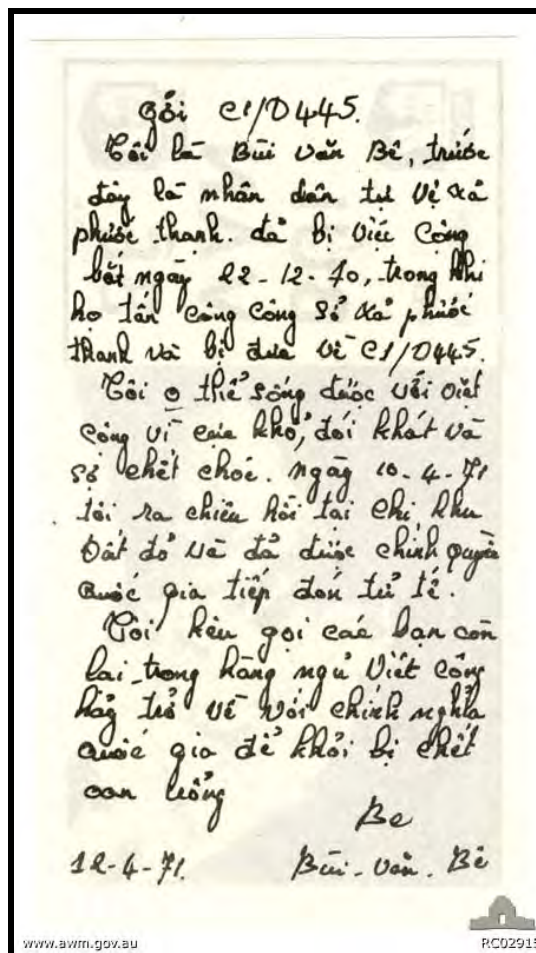 gởi C1/D445.
Tôi là Bùi Văn Bê, trước
đây là nhân dân tự vệ xã
phước thạnh. đã bị Việt Cộng
bắt ngày 22-12-70, trong khi
họ tấn công công sở xã phước
thạnh và bị đưa về C1/D445.
Tôi o thể sống được với việt
cộng vì cực khổ, đói khát và
sợ chết chóc. ngày 10-4-71
tôi ra chiêu hồi tại chi khu
Đất đỏ và đã được chính quyền
quốc gia tiếp đón tử tế.
Tôi kêu gọi các bạn còn
lại trong hàng ngũ Việt cộng
hãy trở về với chính nghĩa
quốc gia để khỏi bị chết
oan uổng
Be
12-4-71. Bùi-Văn-Bê
www.awm.gov.au RC02915